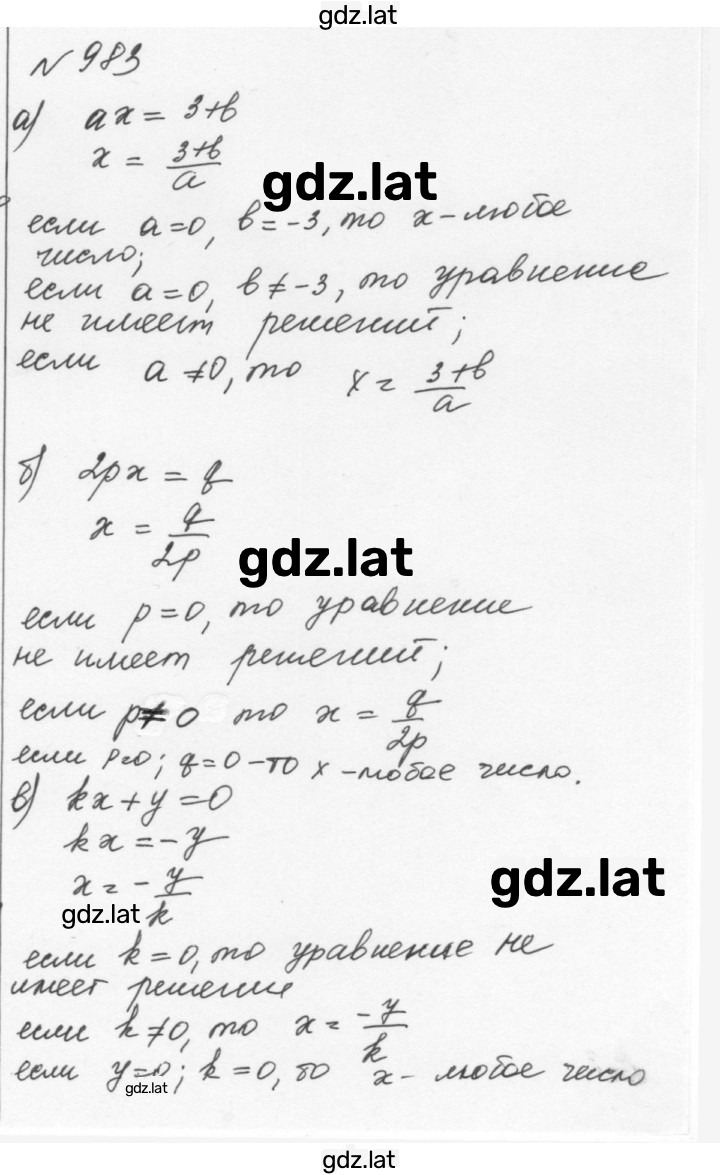 gdz.lat
№ 983
а) ax = 3+b
x = 3+b/a
gdz.lat
если a=0, b=-3, то x - любое
число;
если a=0, b≠-3, то уравнение
не имеет решений;
если a≠0, то x = 3+b/a
б) 2px = q
x = q/2p
gdz.lat
если p=0, то уравнение
не имеет решений;
если p≠0 то x = q/2p
если p=0; q=0 - то x - любое число.
в) kx+y=0
kx=-y
x=-y/k
gdz.lat
gdz.lat
если k=0, то уравнение не
имеет решение
если k≠0, то x=-y/k
если y=0; k=0, то x - любое число
gdz.lat
gdz.lat